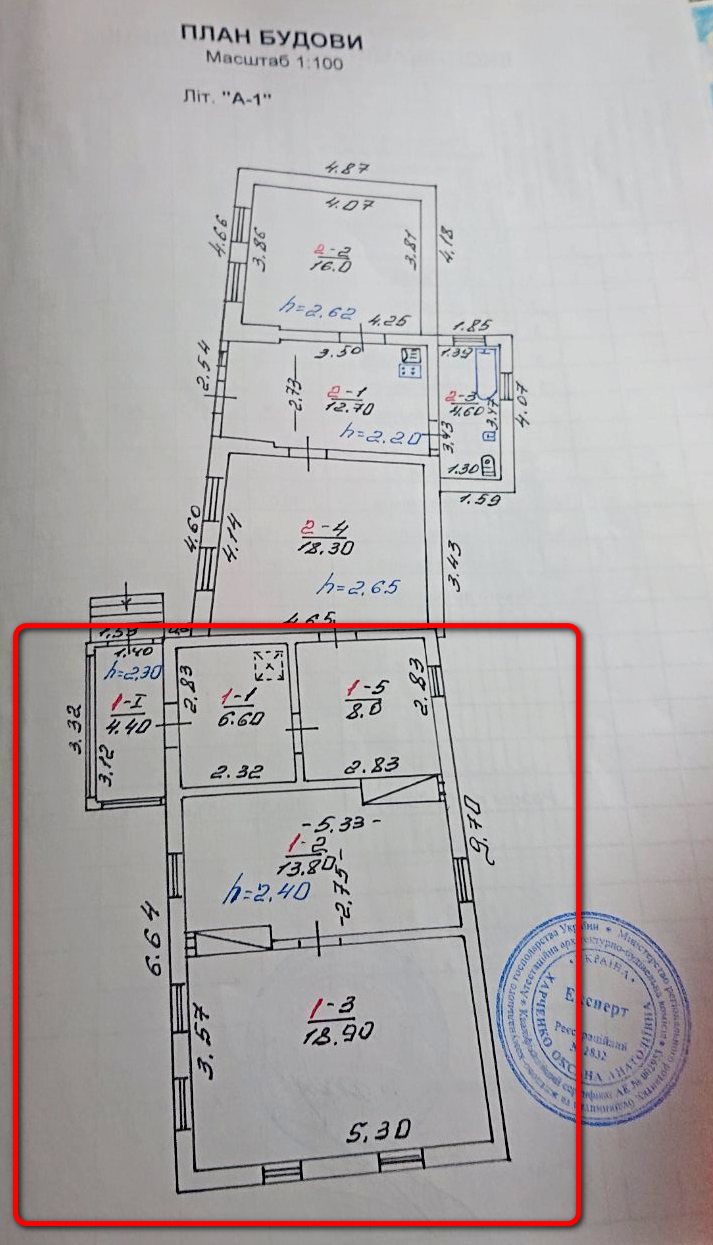 ПЛАН БУДОВИ
Масштаб 1:100
Літ. "А-1"
4.87
4.07
4.66
3.86
2-2
16.0
3.81
4.18
h=2.62
4.25
1.85
3.50
1.39
2.54
2.73
2-1
12.70
2-3
4.60
3.47
4.07
h=2.20
3.43
1.30
1.59
4.60
4.14
2-4
18.30
3.43
h=2.65
4.65
1.40
h=2.30
1-I
4.40
3.32
3.12
2.83
1-1
6.60
1-5
8.0
2.83
2.32
2.83
-5.33-
1-2
13.80
9.70
h=2.40
-2.75-
6.64
1-3
18.90
3.57
5.30
УКРАЇНА
Експерт
Реєстраційний
№ 2832
ХАРЧЕНКО ОКСАНА АНАТОЛІЇВНА